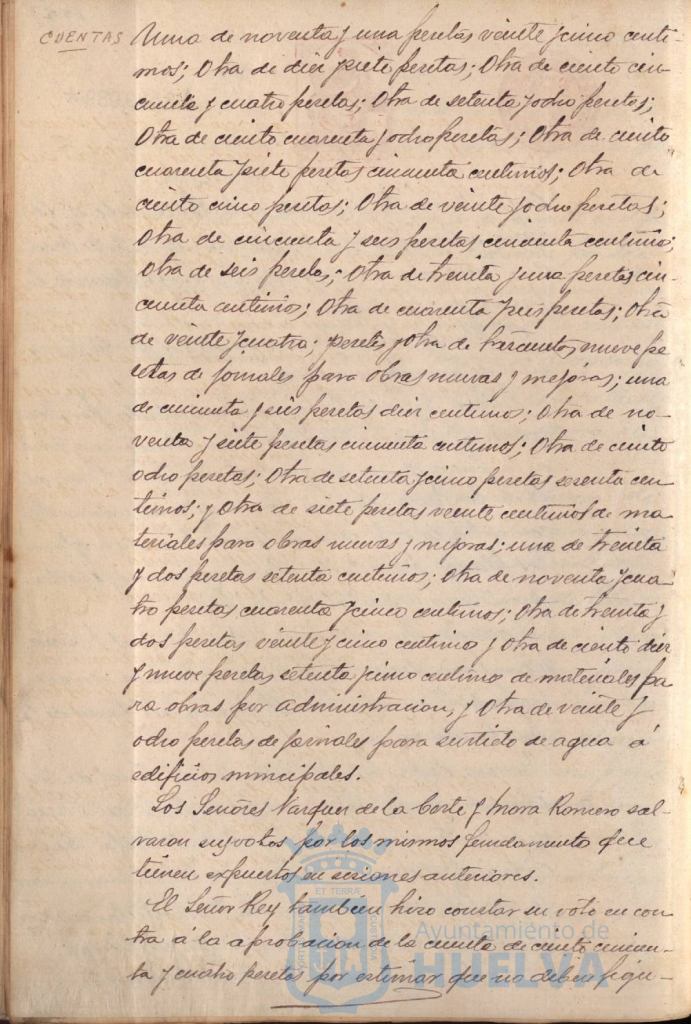 CUENTAS Una de noventa y una pesetas veinte y cinco centi-
mos; Otra de diez y siete pesetas; Otra de ciento cin-
cuenta y cuatro pesetas; Otra de setenta y ocho pesetas;
Otra de ciento cuarenta y ocho pesetas; Otra de ciento
cuarenta y siete pesetas cincuenta centimos; Otra de
ciento cinco pesetas; Otra de veinte y ocho pesetas;
Otra de cincuenta y seis pesetas cincuenta centimos;
Otra de seis pesetas; Otra de treinta y una pesetas cin-
cuenta centimos; Otra de cuarenta y seis pesetas; Otra
de veinte y cuatro pesetas y Otra de trescientas nueve pe
setas de jornales para obras nuevas y mejoras; una
de cincuenta y seis pesetas diez centimos; Otra de no-
venta y siete pesetas cincuenta centimos; Otra de ciento
ocho pesetas; Otra de setenta y cinco pesetas sesenta cen-
timos; y Otra de siete pesetas veinte centimos de ma-
teriales para obras nuevas y mejoras; una de treinta
y dos pesetas setenta centimos; Otra de noventa y cua-
tro pesetas cuarenta y cinco centimos; Otra de treinta y
dos pesetas veinte y cinco centimos y Otra de ciento diez
y nueve pesetas setenta y cinco centimos de materiales pa-
ra obras por administracion, y Otra de veinte y
ocho pesetas de jornales para surtido de agua á
edificios minicipales.
Los Señores Vazquez de la Corte y Mora Romero sal-
varon sus votos por los mismos fundamentos que
tienen expuestos en sesiones anteriores.
El Señor Rey tambien hizo constar su voto en con-
tra á la aprobacion de la cuenta de ciento cincuen-
ta y cuatro pesetas por estimar que no deben figu-
ET TERRÆ
Ayuntamiento de
HUELVA